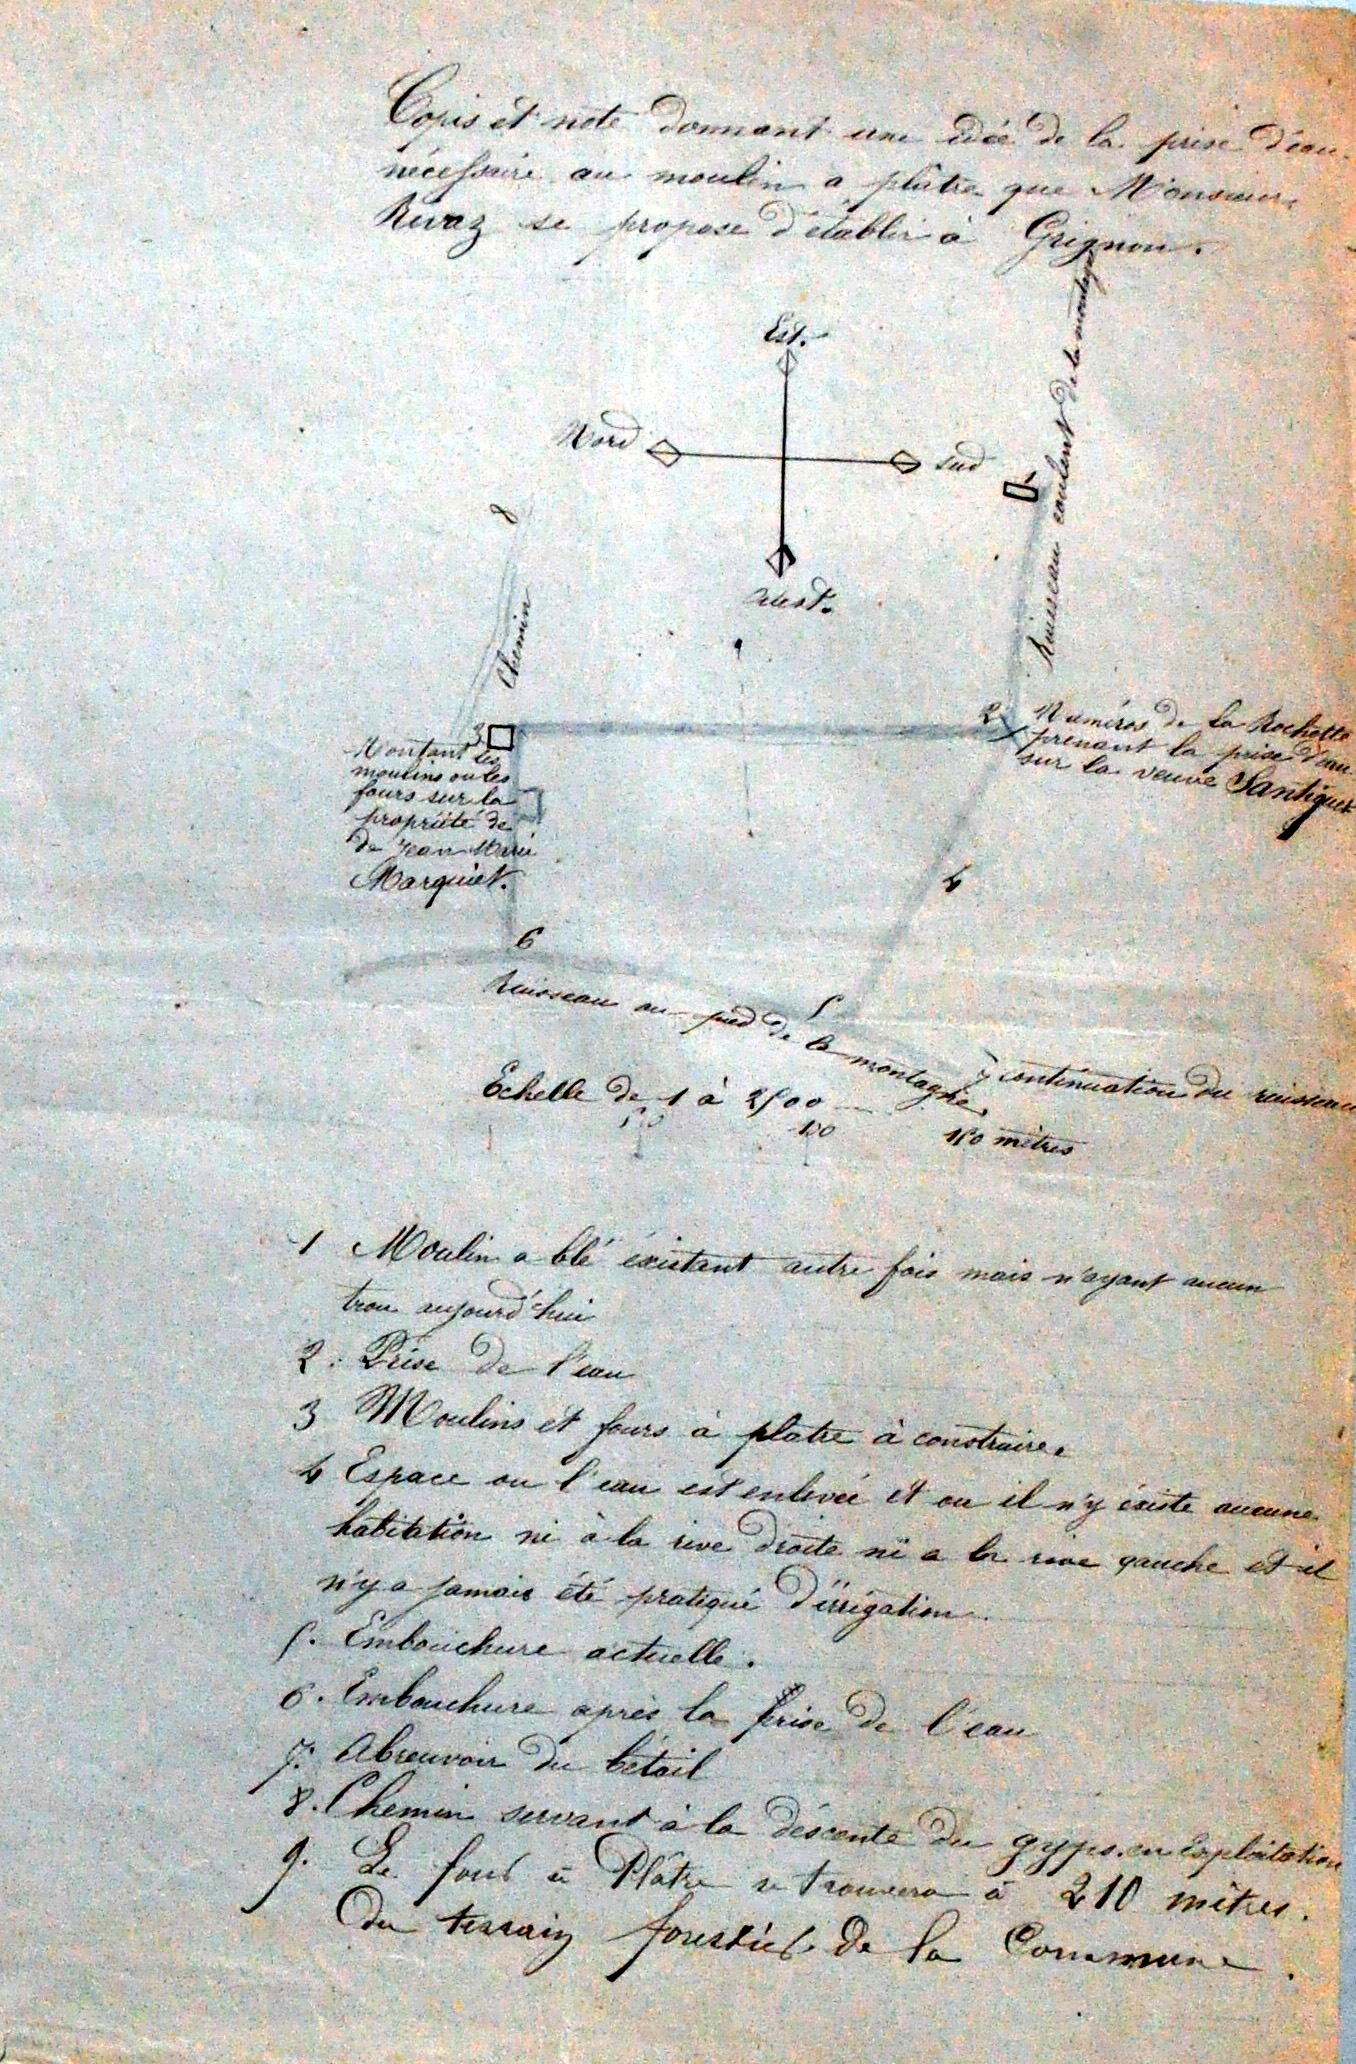 Copie et note donnant une idée de la prise d'eau
nécessaire au moulin a plâtre que Monsieur
Rivaz se propose d'établir à Grignon.
Est.
Nord
Sud
Ouest.
1
Ruisseau coulent de la montagne
8
Chemin
3
2
Numéros de la Rochette
prenant la prise d'eau
sur la veuve
Montant les
moulins ou les
fours sur la
propriété de
de Jean Marie
Marquiet.
4
6
5
Ruisseau au pied de la montagne.
7 continuation du ruisseau
Echelle de 1 à 2500
50 100 150 mètres
1 Moulin a blé éxistant autre fois mais n'ayant aucun
trou aujourd'hui
2. Prise de l'eau
3 Moulins et fours à platre à construire.
4 Espace ou l'eau est enlevée et ou il n'y éxiste aucune
habitation ni à la rive droite ni a la rive gauche et il
n'y a jamais été pratiqué d'irrigation
5. Embouchure actuelle.
6. Embouchure après la prise de l'eau
7. Abreuvoir du bétail
8. Chemin servant à la déscente du gyps en Exploitation
9. Le four à Plâtre se trouvera à 210 mètres.
Du terrain forestier de la Commune.